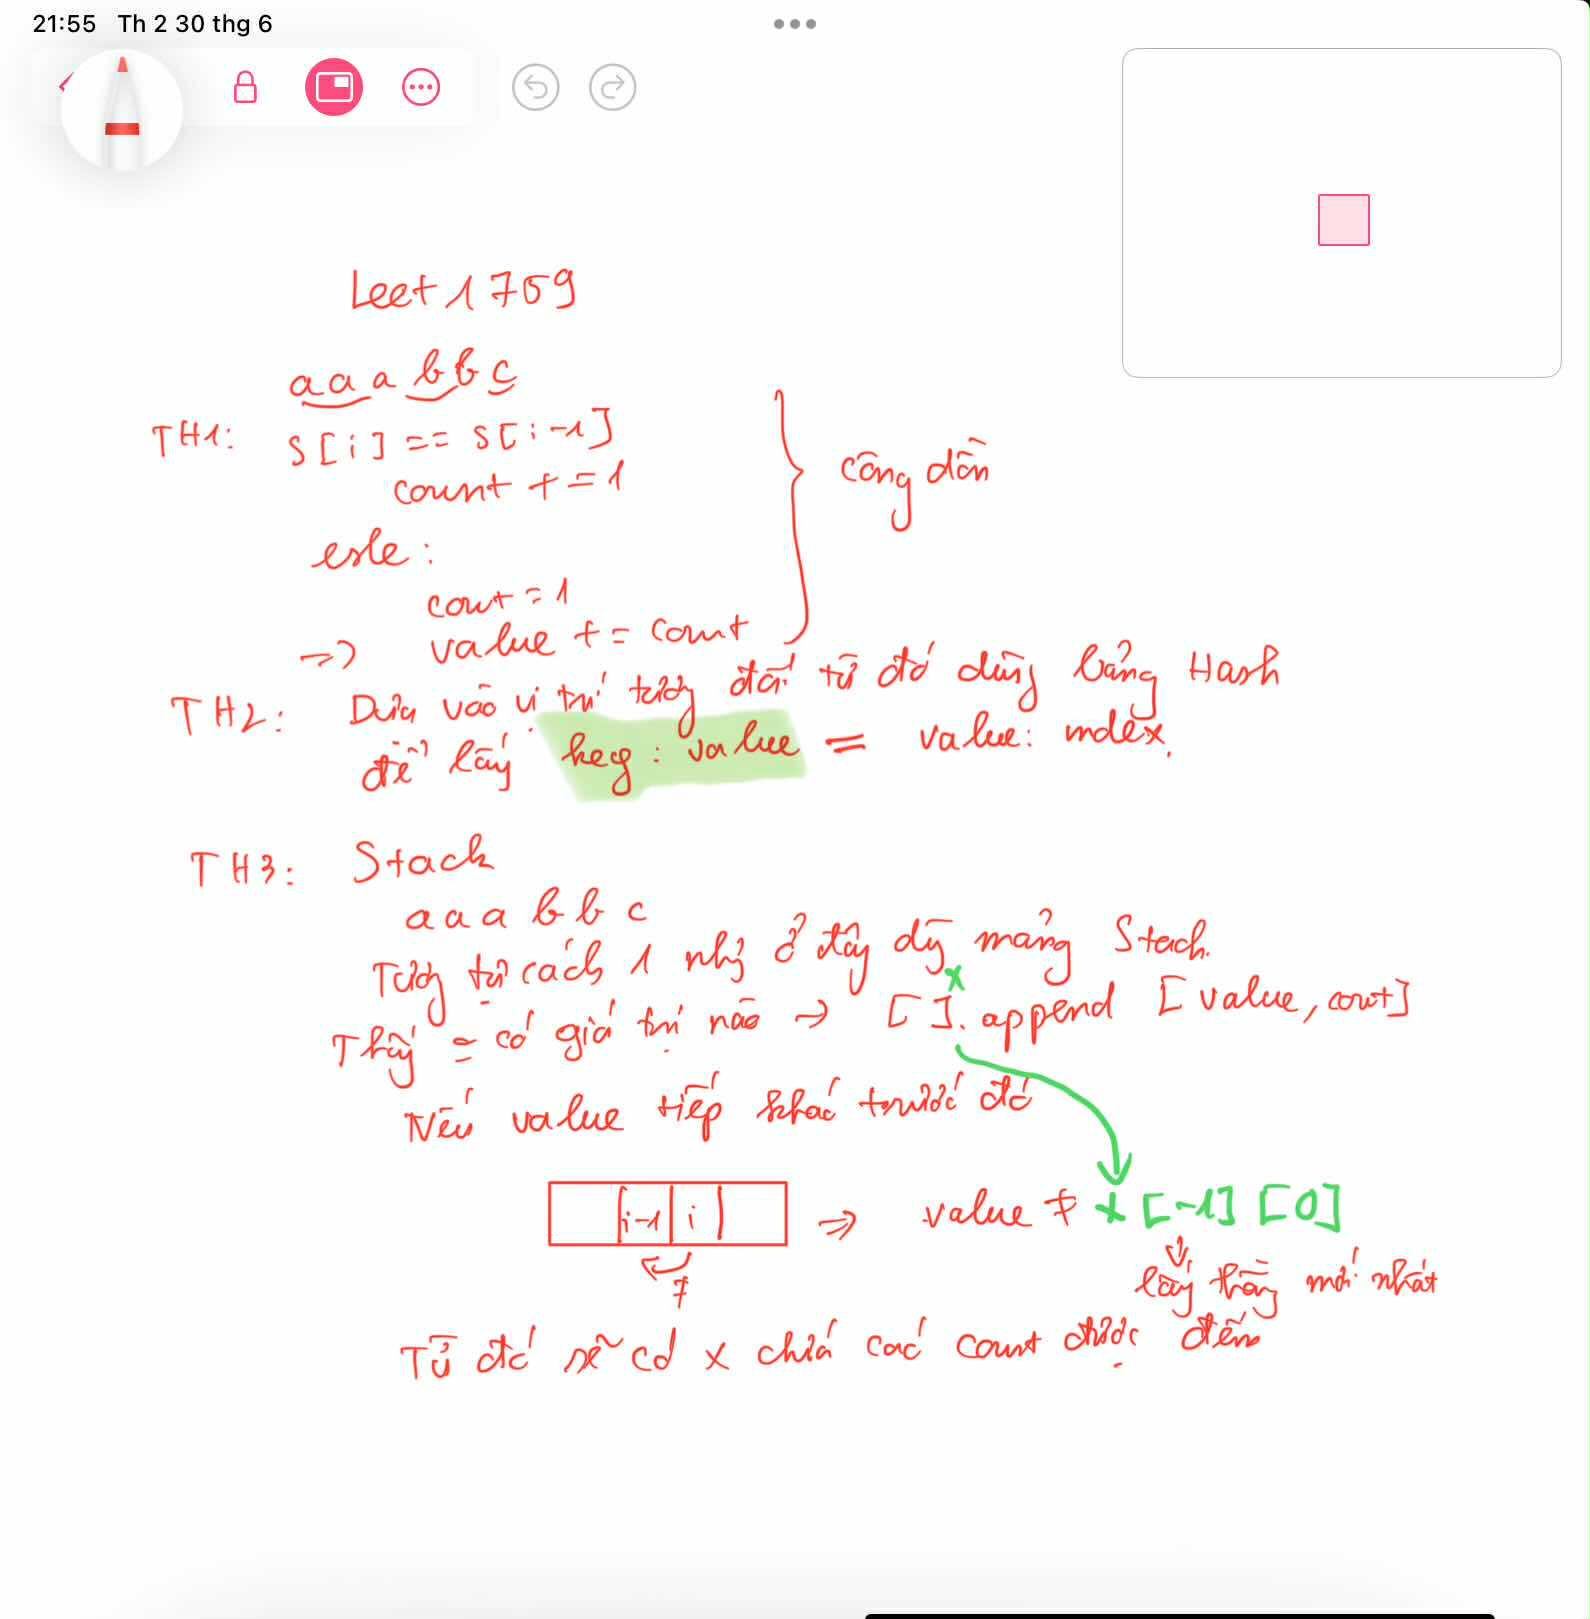 21:55 Th 2 30 thg 6
Leet 1759
aaabbc
TH1: S[i] == S[i-1]
count += 1
esle:
cout = 1
=> value += count
cộng dồn
TH2: Dựa vào vị trí tương đối từ đó dùng bảng Hash
để lấy key: value = value: index.
TH3: Stack
aaabbc
Tương tự cách 1 nhg ở đây dùng mảng Stack.
x
Thấy = có giá trị nào → [ ].append [value, cout]
Nếu value tiếp khác trước đó
i-1 i => value ≠ x[-1][0]
≠
lấy thằng mới nhất
Từ đó sẽ có x chứa các count được đếm